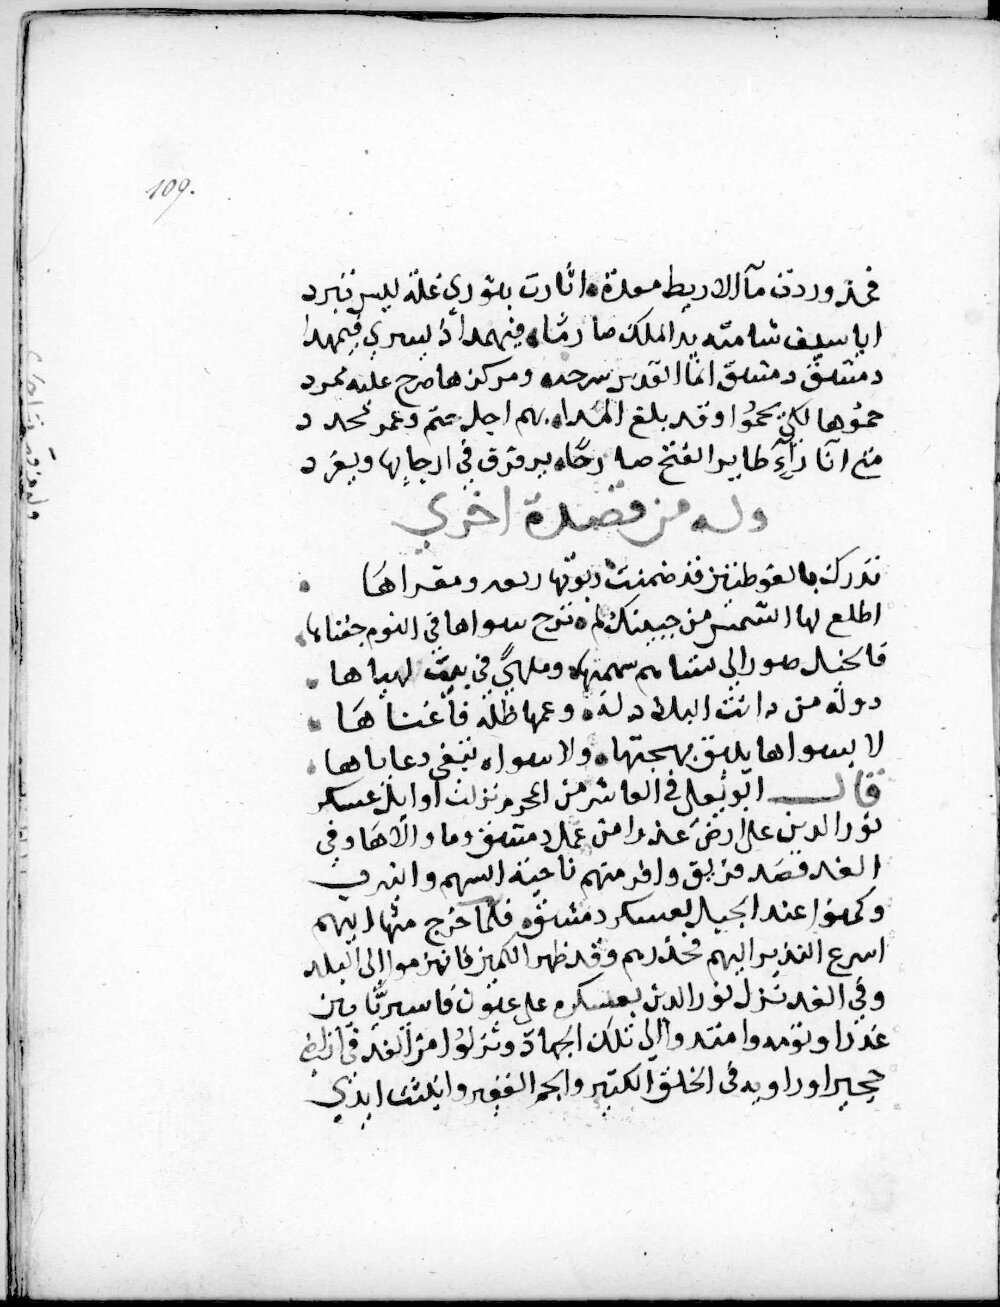 109.
فمذ وردت مآ الاريط معدة اثارت بثوري غلة ليس تبرد
ايا سيف شامته يد الملك صارما فيهمد اذ ليسري فيمهدا
دمشق دمشق انما القدس سرحه ومركزها صرح عليه ممرد
حموها لكي يحموا وقد بلغ المدا بهم اجل حتم وعمر محدد
متى انا رآء طاير الفتح صارخا يرفرف في ارجايها ويغرد
وله من قصيدة اخري
تدركت بالغوطتين قد ضمنت ربوتها ومقراها
اطلع لها الشمس من جبينك لم ترج سواها في النوم جفناها
دولة من دانت البلاد له وعمها ظله فاغناها
لا بسواها يليق بهجتها ولا سواه تبغي رعاياها
قال ابو يعلي في العاشر من المحرم نزلت اوايل عسكر
نور الدين علي ارض عذرا من عمل دمشق وما والاها وفي
الغد قصد فريق وافر منهم ناحية السهم والنيرب
وكمنوا عند الجبل لعسكر دمشق فلما خرج منها اليهم
اسرع النذير اليهم فحذرهم وقد ظهر الكمين فانهزموا الي البلد
وفي الغد نزل نور الدين بعسكره علي عيون فاسريا بين
عذرا ودومه وامتدوا الي تلك الجهات ونزلوا من الغد في اراضي
حجيرا وراويه في الخلق الكثير والجم الغفير وانبثت ايدي